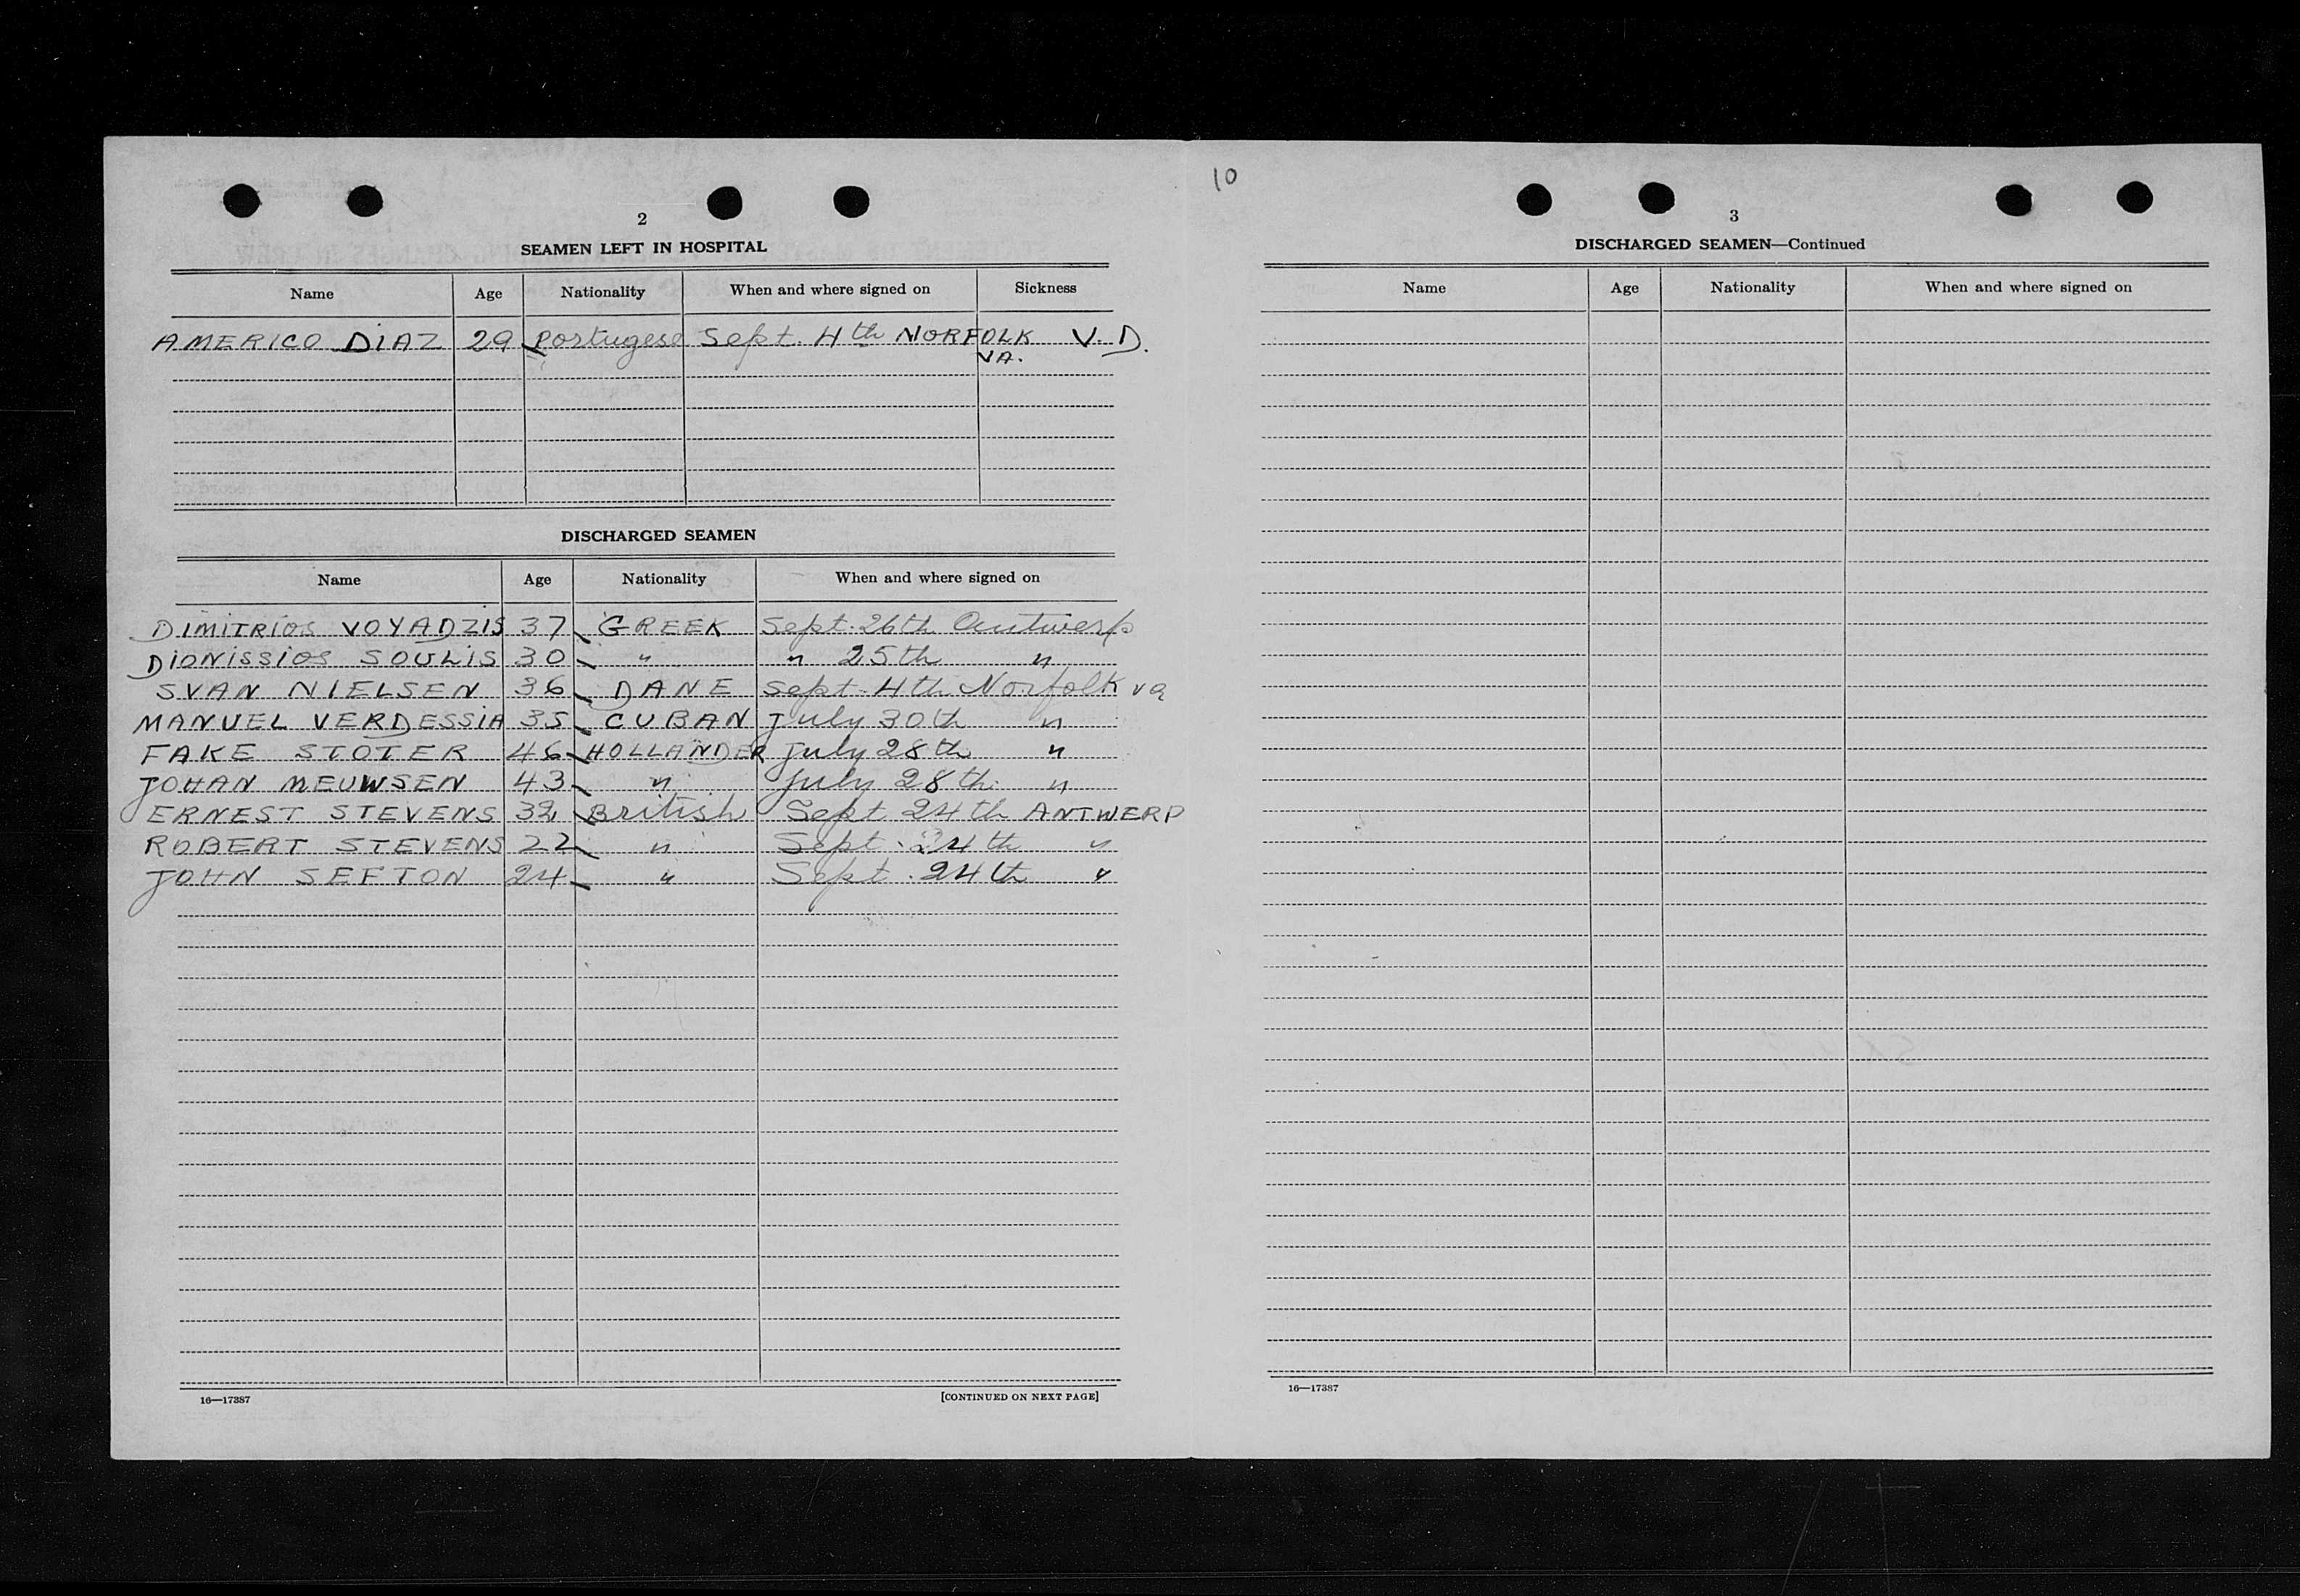 2
SEAMEN LEFT IN HOSPITAL
Name Age Nationality When and where signed on Sickness
AMERICO DIAZ 29 Portugese Sept. 4th NORFOLK V.D.
VA.
DISCHARGED SEAMEN
Name Age Nationality When and where signed on
DIMITRIOS VOYADZIS 37 GREEK Sept. 26th Antwerp
DIONISSIOS SOULIS 30 " " 25th "
SVAN NIELSEN 36 DANE Sept. 4th Norfolk va
MANUEL VERDESSIA 35 CUBAN July 30th "
FAKE STOTER 46 HOLLANDER July 28th "
JOHAN MEUWSEN 43 " July 28th "
ERNEST STEVENS 32 British Sept 24th ANTWERP
ROBERT STEVENS 22 " Sept. 24th "
JOHN SEFTON 24 " Sept. 24th "
16—17387 [CONTINUED ON NEXT PAGE]
10
3
DISCHARGED SEAMEN—Continued
Name Age Nationality When and where signed on
16—17387